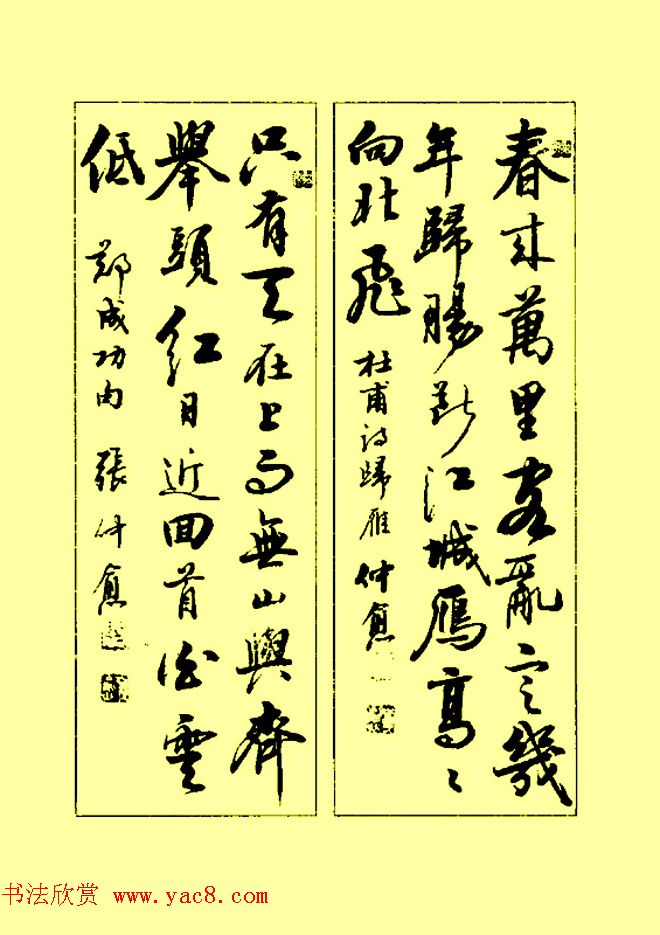 春来萬里客亂定幾
年歸腸斷江城鴈高〻
向北飛
杜甫詩歸雁 仲愈
只有天在上而無山與齊
舉頭紅日近回首白雲
低
鄭成功句 張仲愈
书法欣赏 www.yac8.com